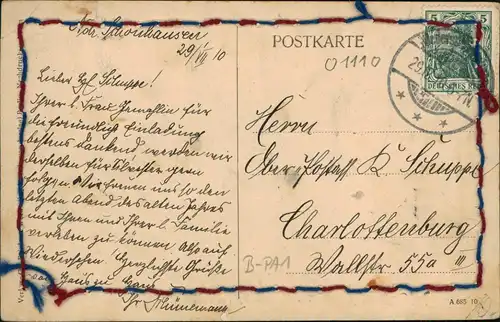 Ndr. Schönhausen
29/XII 10
Lieber Hr. Schuppe!
Ihrer l. Frau Gemahlin für
die freundliche Einladung
bestens dankend werden wir
derselben für Silvester gern
folgen. Wir freuen uns so den
letzten Abend des alten Jahres
mit Ihnen und Ihrer l. Familie
verleben zu können. Also auf
Wiedersehen. Herzlichste Grüße
von Haus zu Haus
Ihr
POSTKARTE
01110
5 5
DEUTSCHES REICH
29.
Herrn
Ober-Postass. K. Schuppe
Charlottenburg
Wallstr. 55a III
B-PA1
A 685 10